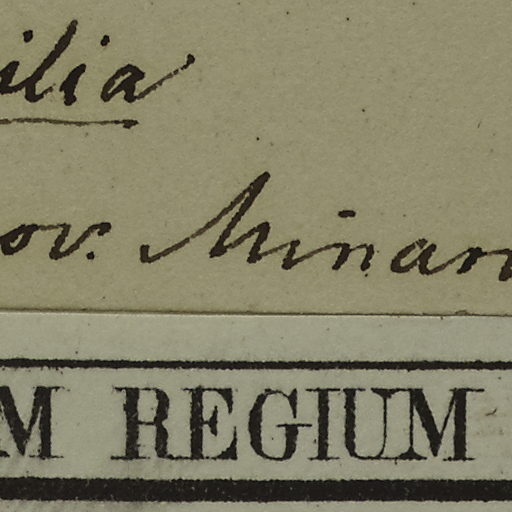 ilia
ov. Minar
M REGIUM